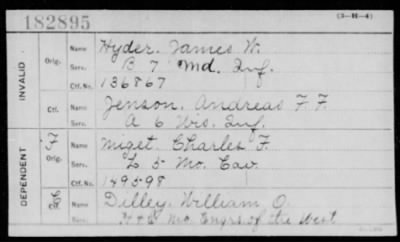 182895
(3-H-4)
INVALID
Orig.
Name Hyder. James W.
Serv. B 7 Md. Inf.
Ctf. No. 136867
Ctf.
Name Jenson. Andreas F. F.
Serv. A 6 Wis. Inf.
DEPENDENT
Orig.
Name Miget. Charles F.
Serv. L 5 Mo. Cav.
Ctf. No. 149598
Name Dilley. William O.
Serv. Mo. Engrs of the West